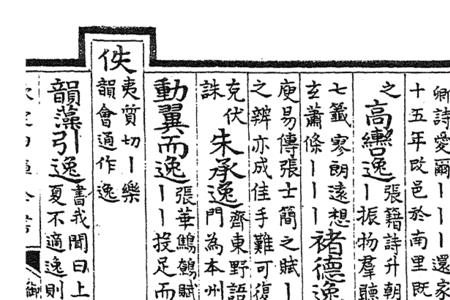 卿詩愛爾丨丨丨還家
十五年改邑於南里既
之
高轡逸
張籍詩升朝
丨振物羣聽
七籤寥朗遠想
玄蕭條丨丨丨
褚德逸
庾易傳張士簡之賦丨
之辨亦成佳手難可復
克伏
誅
朱承逸
齊東野語
門為本州
動翼而逸
張華鷦鷯賦
丨投足而
佚
夷質切丨樂
韻會通作逸
韻藻引逸
書我聞曰上
夏不適逸則
御